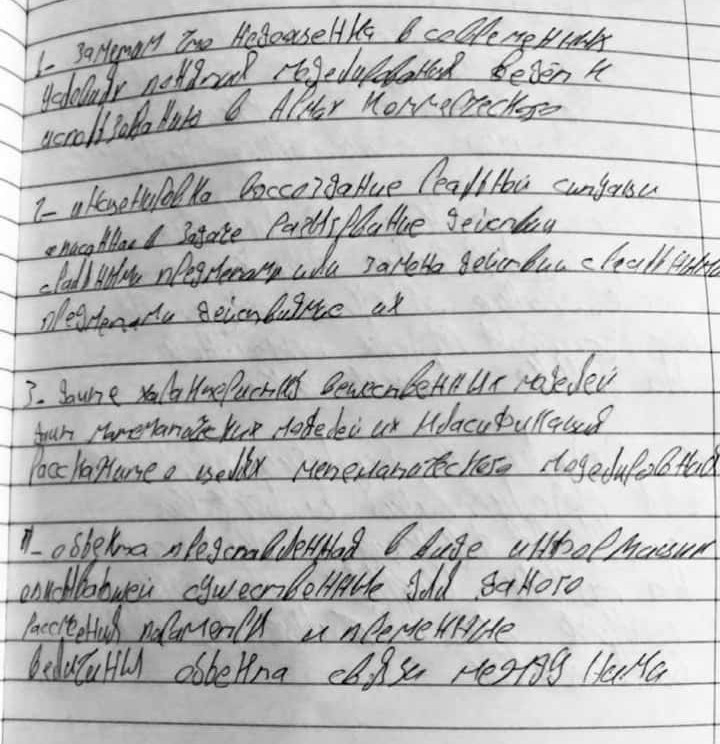 1- Заметим что недооценка в современних
условиях понятия моделирования ведёт к
исползованию в
2- инсценировка воссоздание реалный ситуаци
описанная в задаче разигрвание деиствии
с реалними предметами или замена деиствии с реалними
предметами деиствиями с их
3. Даите характеристики вешественних моделеи
дати математических моделеи их класификация
Расскажите о целях математического моделирования
4- обьекта представленная в виде информации
описивающеи сушественние для даного
рассмотрения параметри и пременние
величини обьекта связи между ними